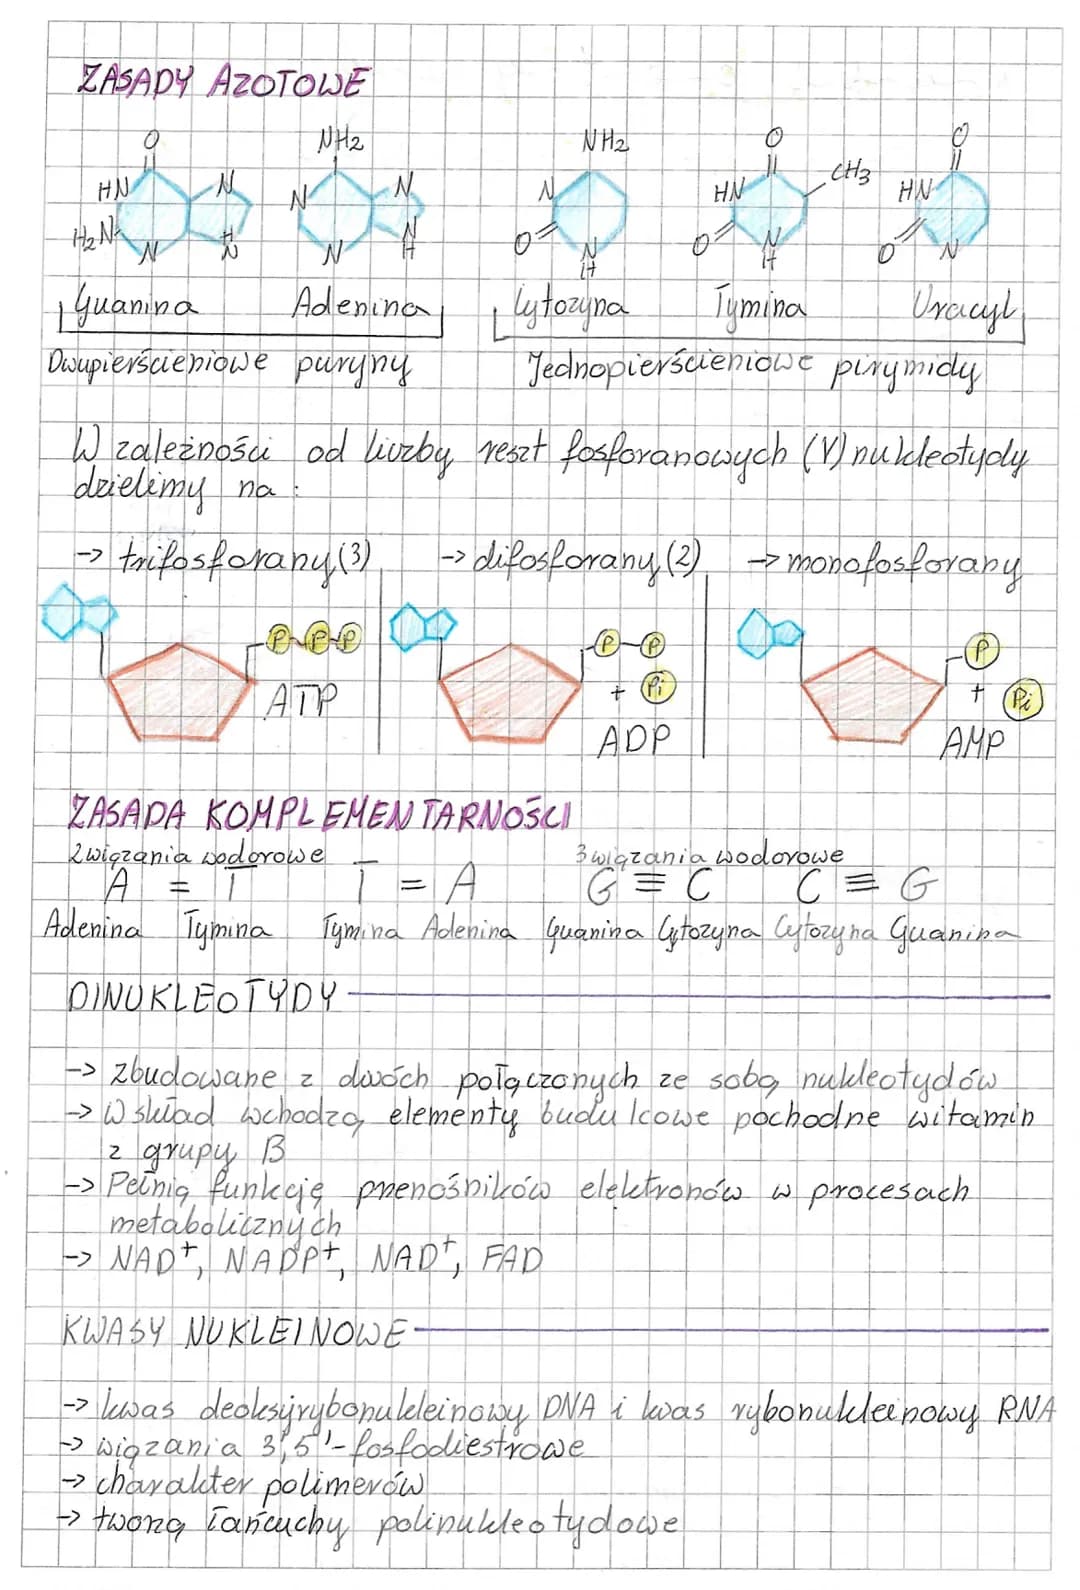 ZASADY AZOTOWE
O NH2 NH2 O O
HN N N N N HN CH3 HN
H2N N N H N N H O N H O N H O N
Guanina Adenina Cytozyna Tymina Uracyl
Dwupierścieniowe puryny Jednopierścieniowe pirymidy
W zależności od liczby reszt fosforanowych (V) nukleotydy
dzielimy na :
-> trifosforany (3) -> difosforany (2) -> monofosforany
P P P P P P
ATP + Pi + Pi
ADP AMP
ZASADA KOMPLEMENTARNOŚCI
2 wiązania wodorowe 3 wiązania wodorowe
A = T T = A G ≡ C C ≡ G
Adenina Tymina Tymina Adenina Guanina Cytozyna Cytozyna Guanina
DINUKLEOTYDY
-> zbudowane z dwóch połączonych ze sobą nukleotydów
-> W skład wchodzą elementy budulcowe pochodne witamin
z grupy B
-> Pełnią funkcję przenośników elektronów w procesach
metabolicznych
-> NAD+, NADP+, NAD+, FAD
KWASY NUKLEINOWE
-> kwas deoksyrybonukleinowy DNA i kwas rybonukleinowy RNA
-> wiązania 3',5'-fosfodiestrowe
-> charakter polimerów
-> tworzą łańcuchy polinukleotydowe